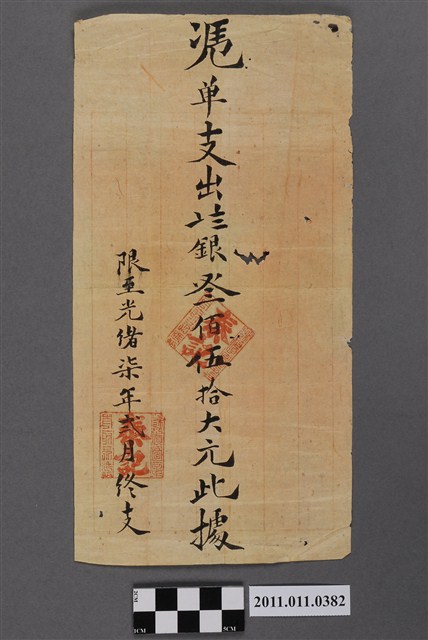 凴单支出銀叁佰伍拾大元此據
限至光緒柒年弍月終支
2CM
1CM
5CM
2011.011.0382